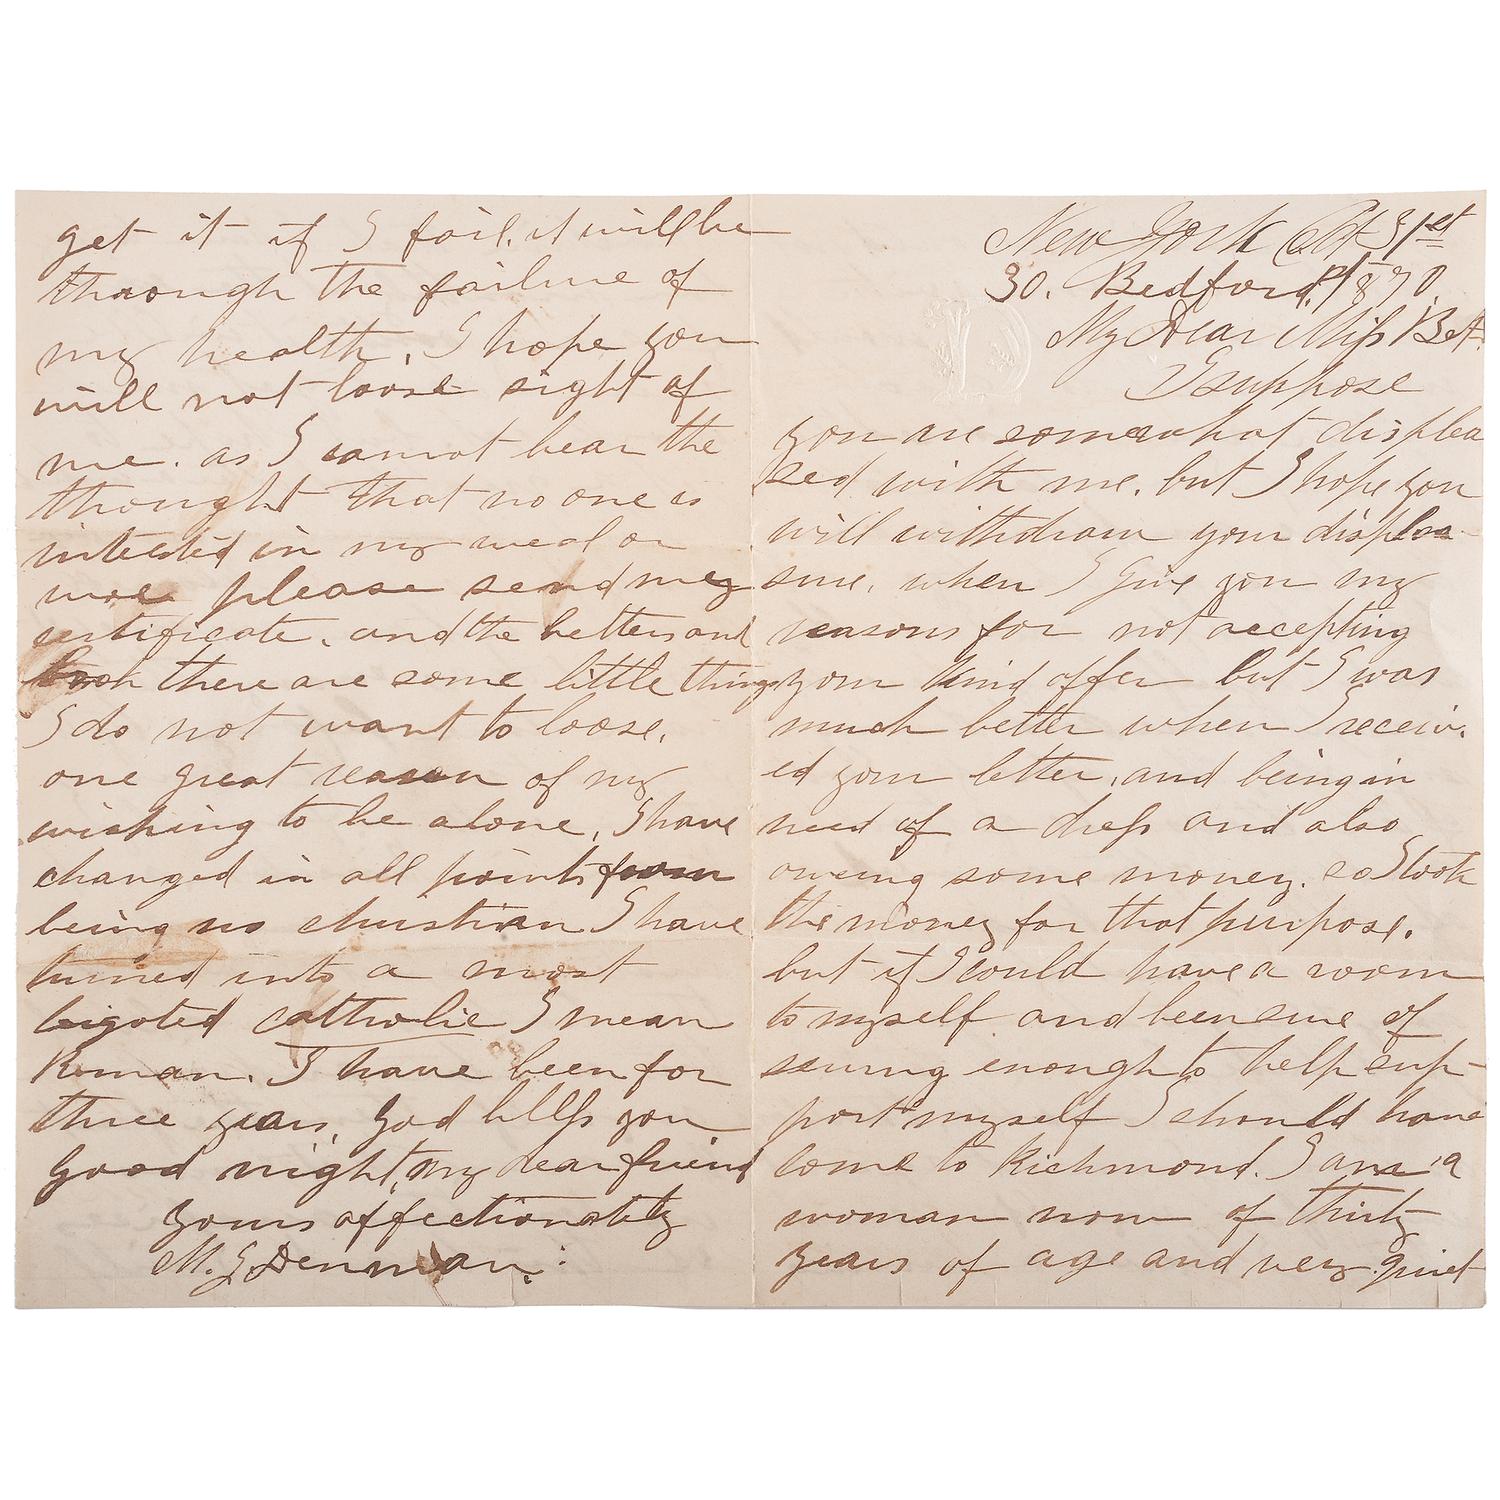 New York Oct 31st
30. Bedford. 1870.
My Dear Miss Bet.
I suppose
you are somewhat displea
sed with me. but I hope you
will withdraw your displea-
sure. when I give you my
reasons for not accepting
your kind offer but I was
much better when I receiv.
ed your letter, and being in
need of a dress and also
oweing some money. so I took
the money for that purpose.
but if I could have a room
to myself and been sure of
sewing enough to help sup-
port myself I should have
come to Richmond. I am a
woman now of thirty
years of age and very quiet
get it if I fail. it will be
through the failure of
my health, I hope you
will not loose sight of
me. as I cannot bear the
thought that no one is
intested in my weal or
woe please send my
certificate. and the letters and
book there are some little things
I do not want to loose.
one great reason of my
wishing to be alone, I have
changed in all points from
being no christian I have
turned into a most
bigoted catholic I mean
Roman. I have been for
three years, God bless you
good night, my dear friend
yours affectionately
M. J. Denman.